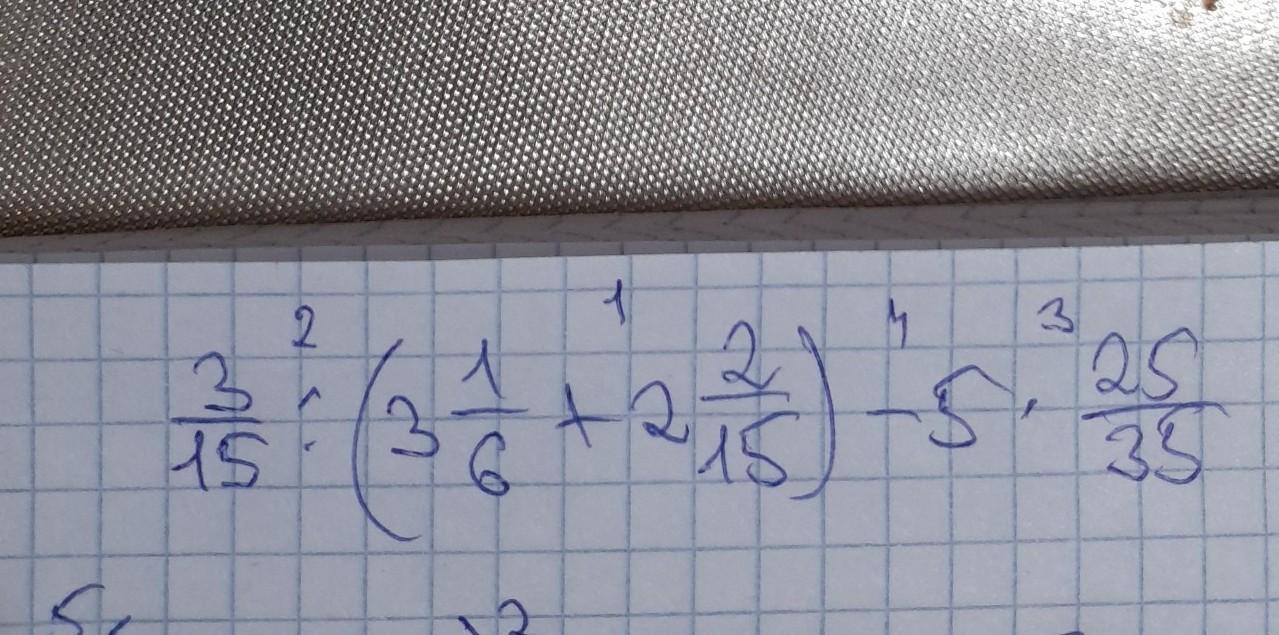 3/15 :² (3 1/6 +¹ 2 2/15) −⁴ 5 ·³ 25/35